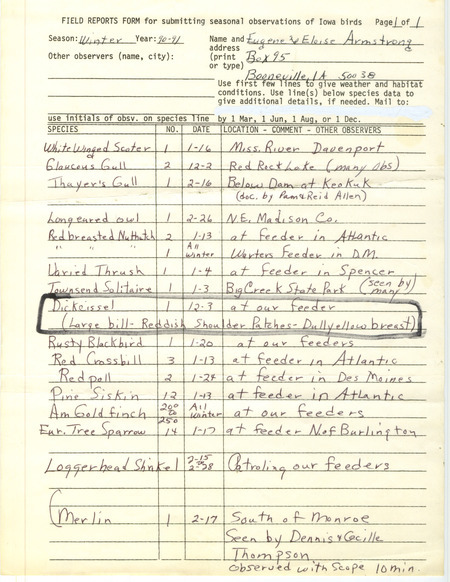 FIELD REPORTS FORM for submitting seasonal observations of Iowa birds Page 1 of 1
Season: Winter Year: 90-91 Name and Eugene & Eloise Armstrong
address
Other observers (name, city): (print Box 95
or type) Booneville, IA 50038
Use first few lines to give weather and habitat
conditions. Use line(s) below species data to
give additional details, if needed. Mail to:
use initials of obsv. on species line by 1 Mar, 1 Jun, 1 Aug, or 1 Dec.
SPECIES NO. DATE LOCATION - COMMENT - OTHER OBSERVERS
White Winged Scoter 1 1-16 Miss. River Davenport
Glaucous Gull 2 12-2 Red Rock Lake (many obs)
Thayer's Gull 1 2-16 Below Dam at Keokuk
(doc. by Pam & Reid Allen)
Longeared owl 1 2-26 N.E. Madison Co.
Red breasted Nuthatch 2 1-13 at feeder in Atlantic
" " " 1 All Winter Worters Feeder in D.M.
Varied Thrush 1 1-4 at feeder in Spencer
Townsend Solitaire 1 1-3 Big Creek State Park (seen by many)
Dickcissel 1 12-3 at our feeder
(Large bill - Reddish Shoulder Patches - Dull yellow breast)
Rusty Blackbird 1 1-20 at our feeders
Red Crossbill 3 1-13 at feeder in Atlantic
Redpoll 2 1-24 at feeder in Des Moines
Pine Siskin 12 1-13 at feeder in Atlantic
Am Goldfinch 200 to 250 All Winter at our feeders
Eur. Tree Sparrow 14 1-17 at feeder N. of Burlington
Loggerhead Shrikel 2-15 2-28 Patroling our feeders
(Merlin 1 2-17 South of Monroe
Seen by Dennis & Cecille
Thompson
Observed with Scope 10 min.